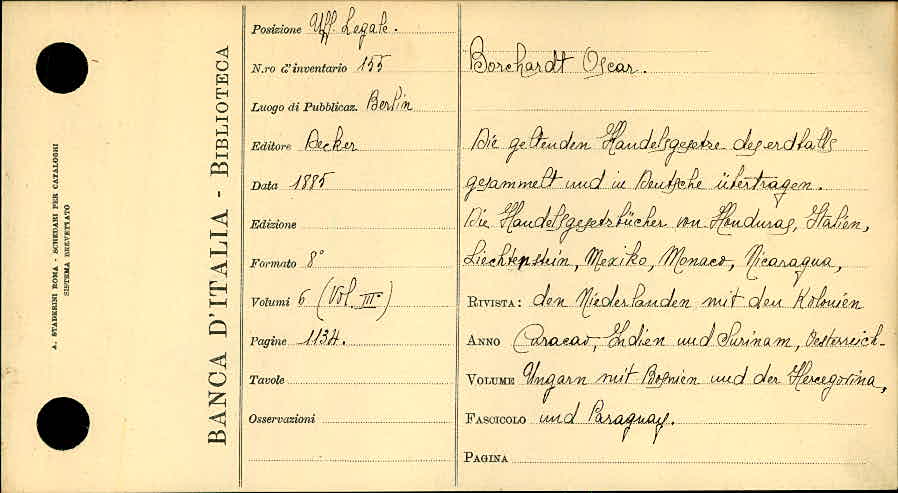 A. STADERINI ROMA - SCHEDARI PER CATALOGHI
SISTEMA BREVETTATO
BANCA D'ITALIA - BIBLIOTECA
Posizione Uff. Legale.
N.ro d'inventario 155
Luogo di Pubblicaz. Berlin
Editore Decker
Data 1885
Edizione
Formato 8°
Volumi 6 (Vol. III°)
Pagine 1134.
Tavole
Osservazioni
Borchardt Oscar.
Die geltenden Handelsgesetze des erdballs
gesammelt und in Deutsche übertragen.
Die Handelsgesetzbücher von Honduras, Italien,
Liechtenstein, Mexiko, Monaco, Nicaragua,
RIVISTA: den Niederlanden mit den Kolonien
ANNO Curacao, Indien und Surinam, Oesterreich-
VOLUME Ungarn mit Bosnien und der Hercegovina,
FASCICOLO und Paraguay.
PAGINA